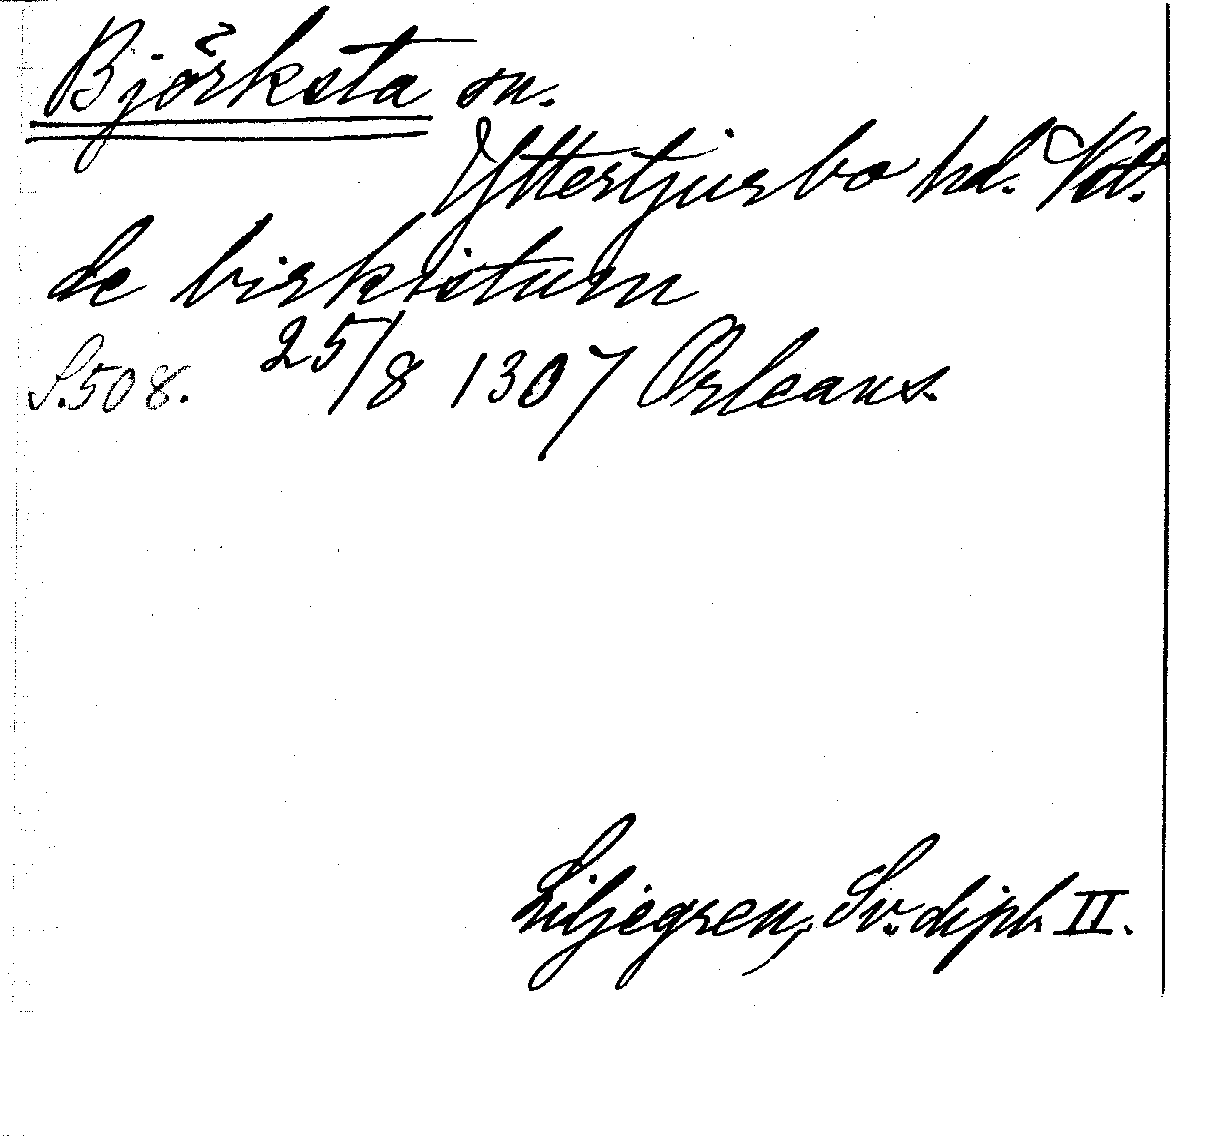 Björksta sn.
Yttertjurbo hd. Vstl.
de birkistum
S. 508. 25/8 1307 Orleans.
Liljegren, Sv. dipl. II.